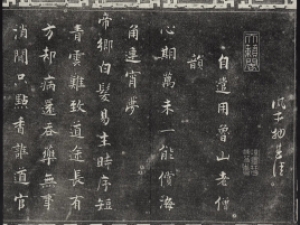 自遣用曾山老僧
韻
心期萬未一能償海
角連宵夢
帝鄉白髮易生時序短
青雲難致道途長有
方却病還吞藥無事
消閒只點香誰道官